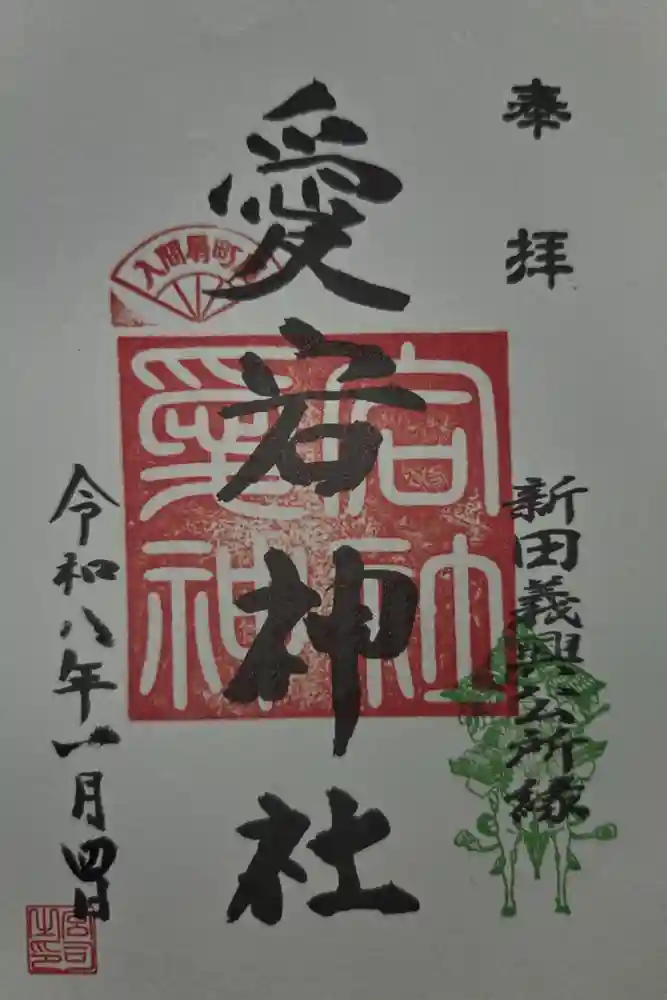 奉拝
新田義興公所縁
愛宕神社
令和八年一月四日
入間扇町屋
愛宕神社
宮司之印